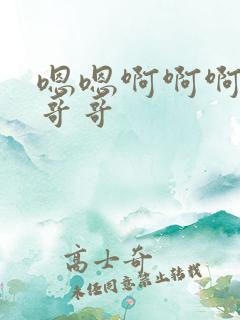 嗯嗯啊啊啊
哥哥
高士奇
未经同意禁止转载